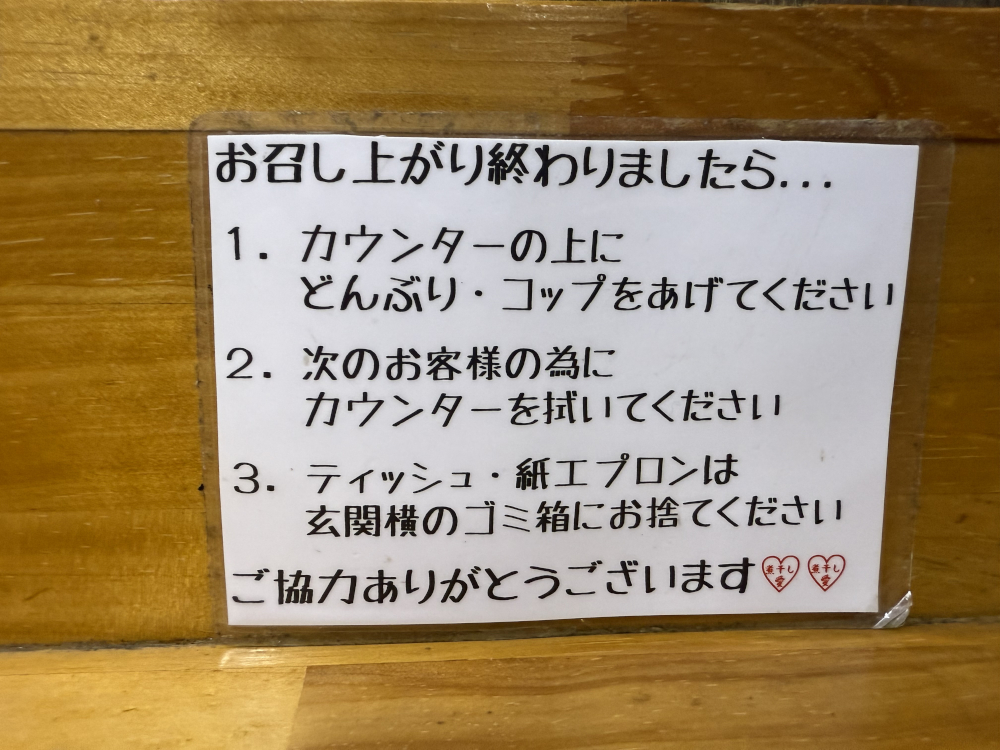 お召し上がり終わりましたら...
1. カウンターの上に
どんぶり・コップをあげてください
2. 次のお客様の為に
カウンターを拭いてください
3. ティッシュ・紙エプロンは
玄関横のゴミ箱にお捨てください
ご協力ありがとうございます
煮干し愛 煮干し愛